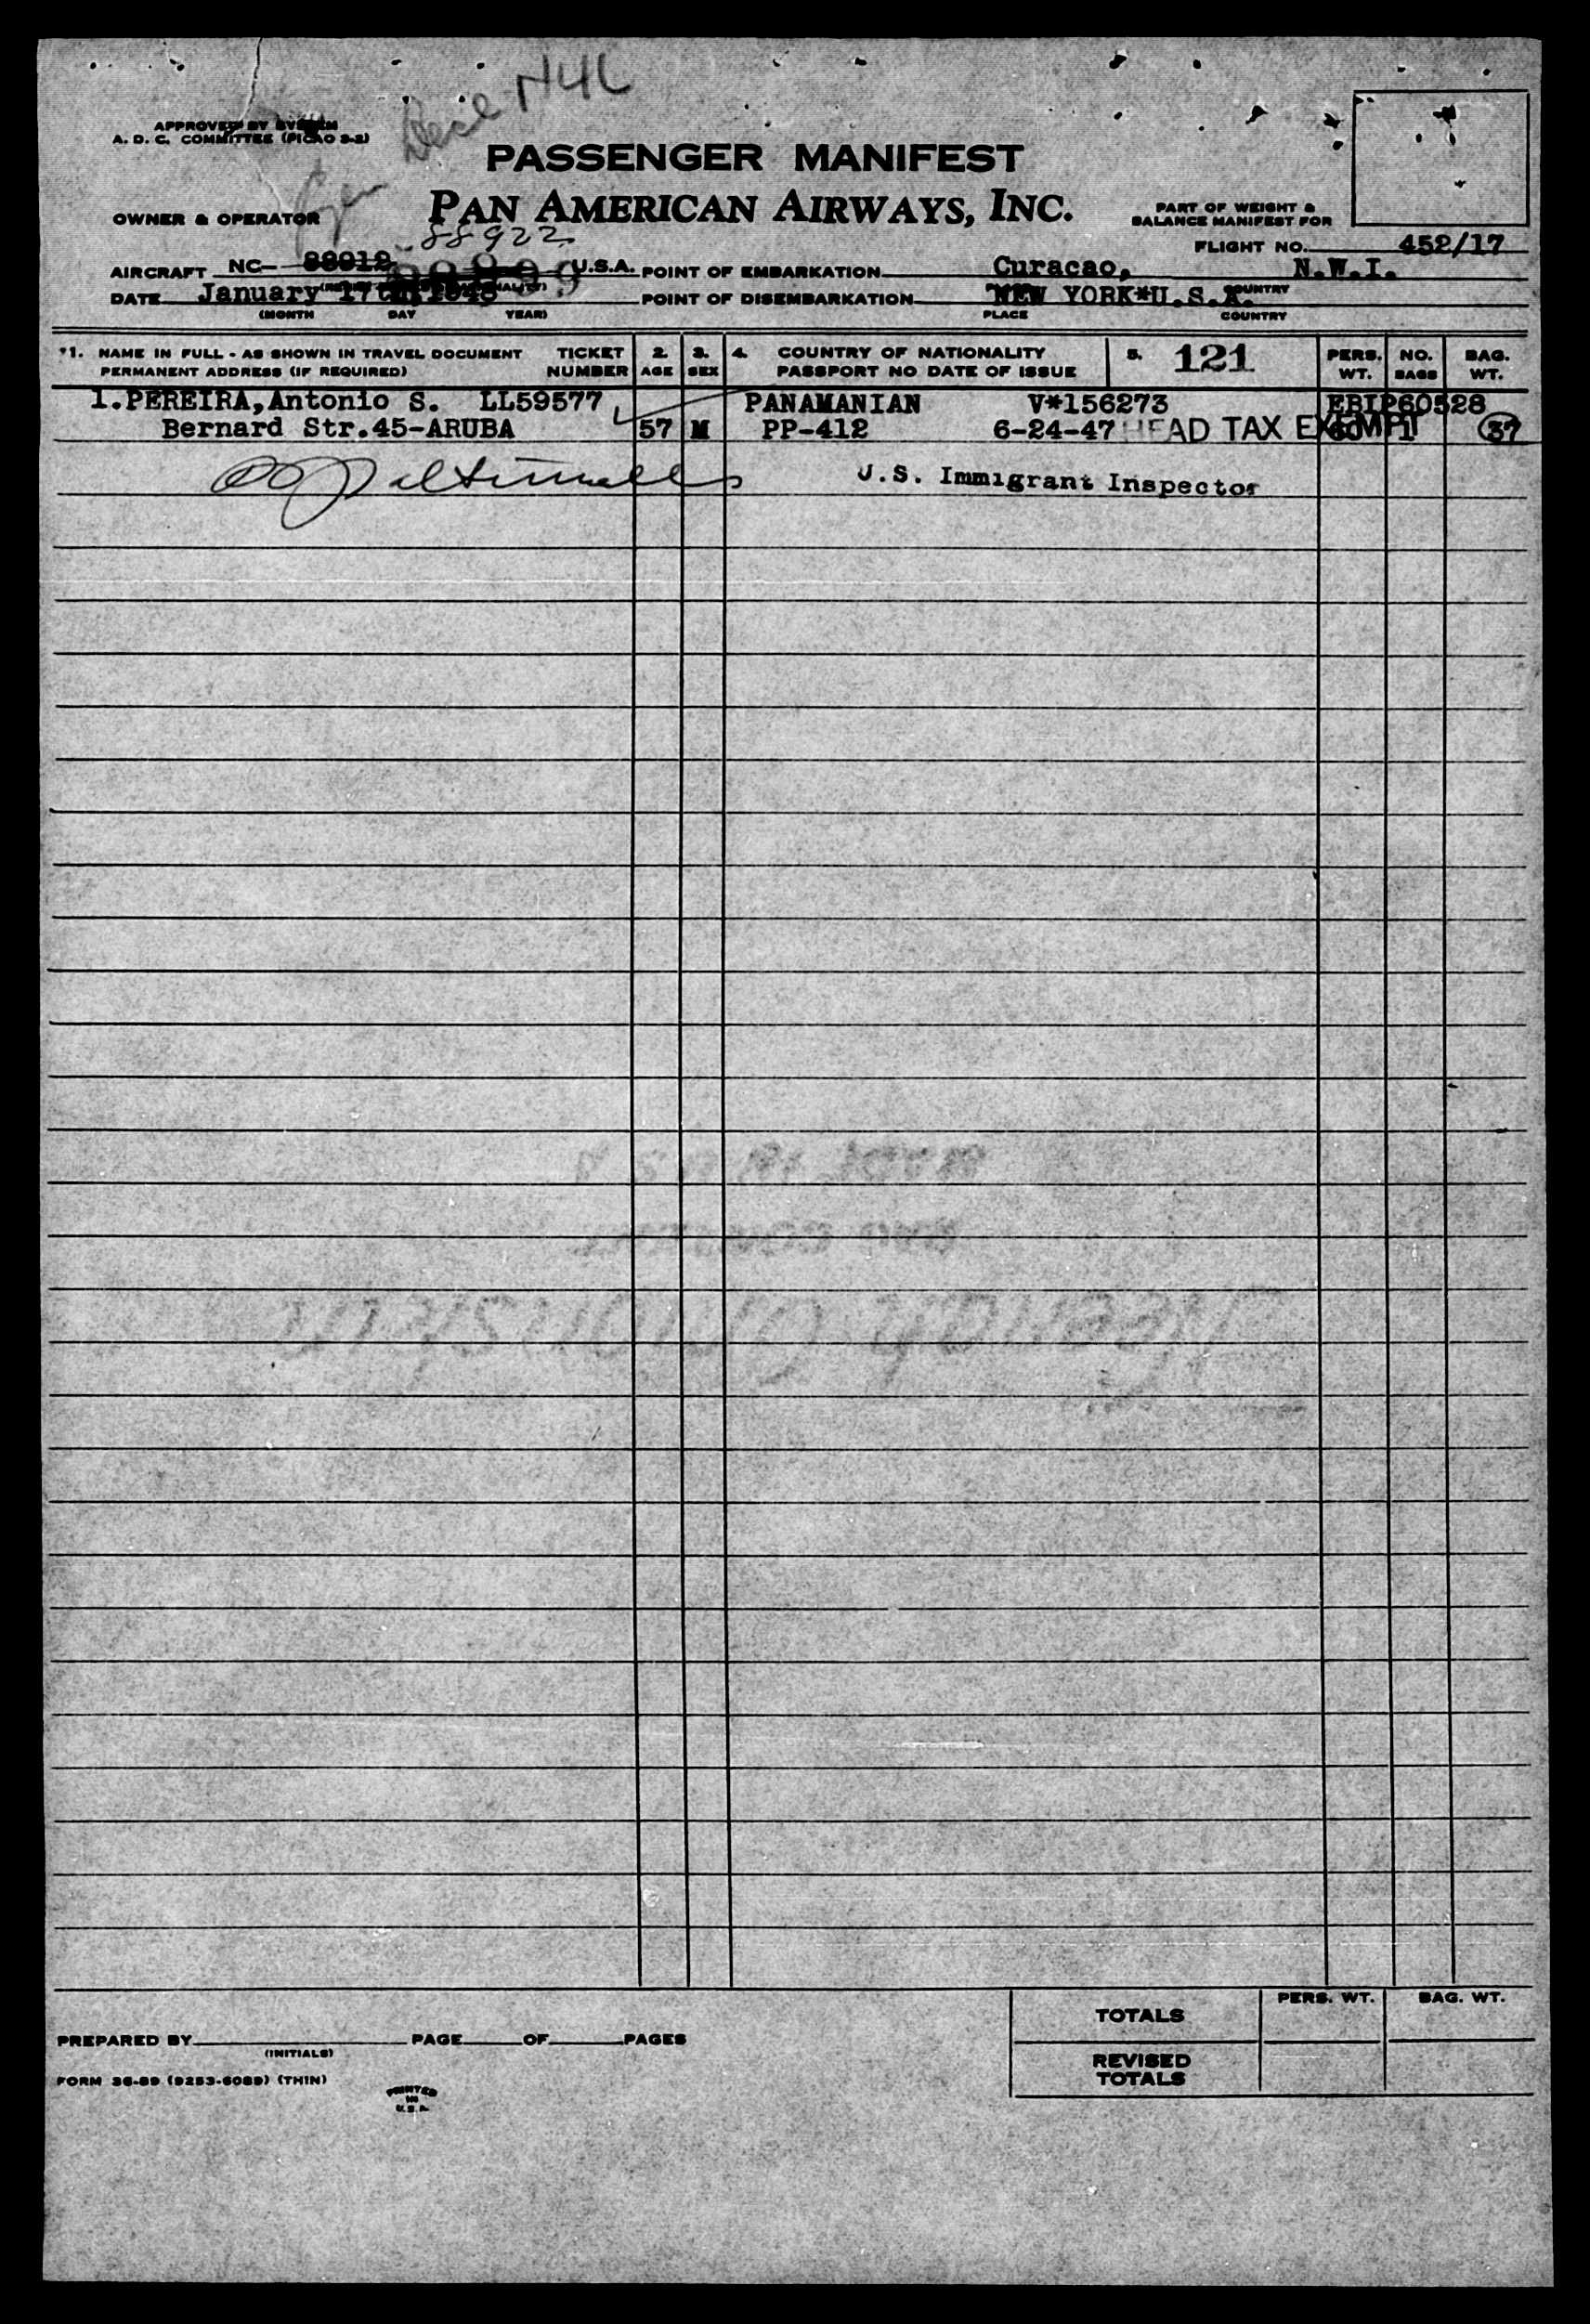 N4L
APPROVED BY SYSTEM
A. D. C. COMMITTEE (PICAO 3-2)
PASSENGER MANIFEST
OWNER & OPERATOR PAN AMERICAN AIRWAYS, INC.
PART OF WEIGHT &
BALANCE MANIFEST FOR
88922
FLIGHT NO. 452/17
AIRCRAFT NC- 88912 U.S.A. POINT OF EMBARKATION Curacao, N.W.I.
DATE January 17th, 1948 POINT OF DISEMBARKATION NEW YORK*U.S.A.
(MONTH DAY YEAR) PLACE COUNTRY
*1. NAME IN FULL - AS SHOWN IN TRAVEL DOCUMENT TICKET 2. 3. 4. COUNTRY OF NATIONALITY 5. 121 PERS. NO. BAG.
PERMANENT ADDRESS (IF REQUIRED) NUMBER AGE SEX PASSPORT NO DATE OF ISSUE WT. BAGS WT.
1.PEREIRA,Antonio S. LL59577 PANAMANIAN V*156273 EBIP60528
Bernard Str.45-ARUBA 57 M PP-412 6-24-47 HEAD TAX EXEMPT 1 37
U.S. Immigrant Inspector
TOTALS PERS. WT. BAG. WT.
PREPARED BY PAGE OF PAGES
(INITIALS)
REVISED
TOTALS
FORM 36-89 (9253-6089) (THIN)
PRINTED
IN
U.S.A.